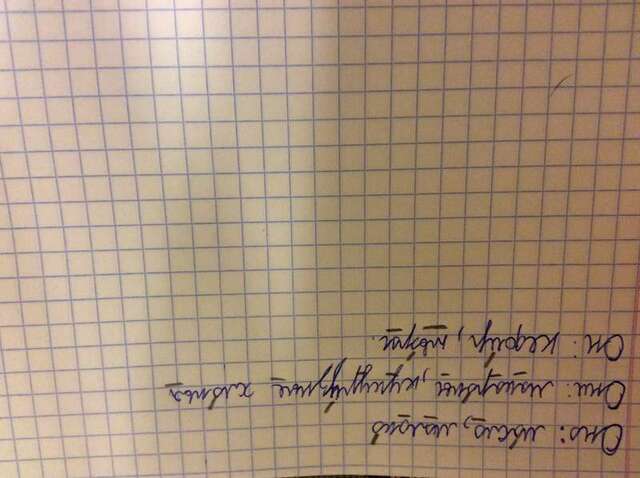 Оно: масло, молоко
Они: макароны, кукурузные хлопья
Он: кефир, творог.